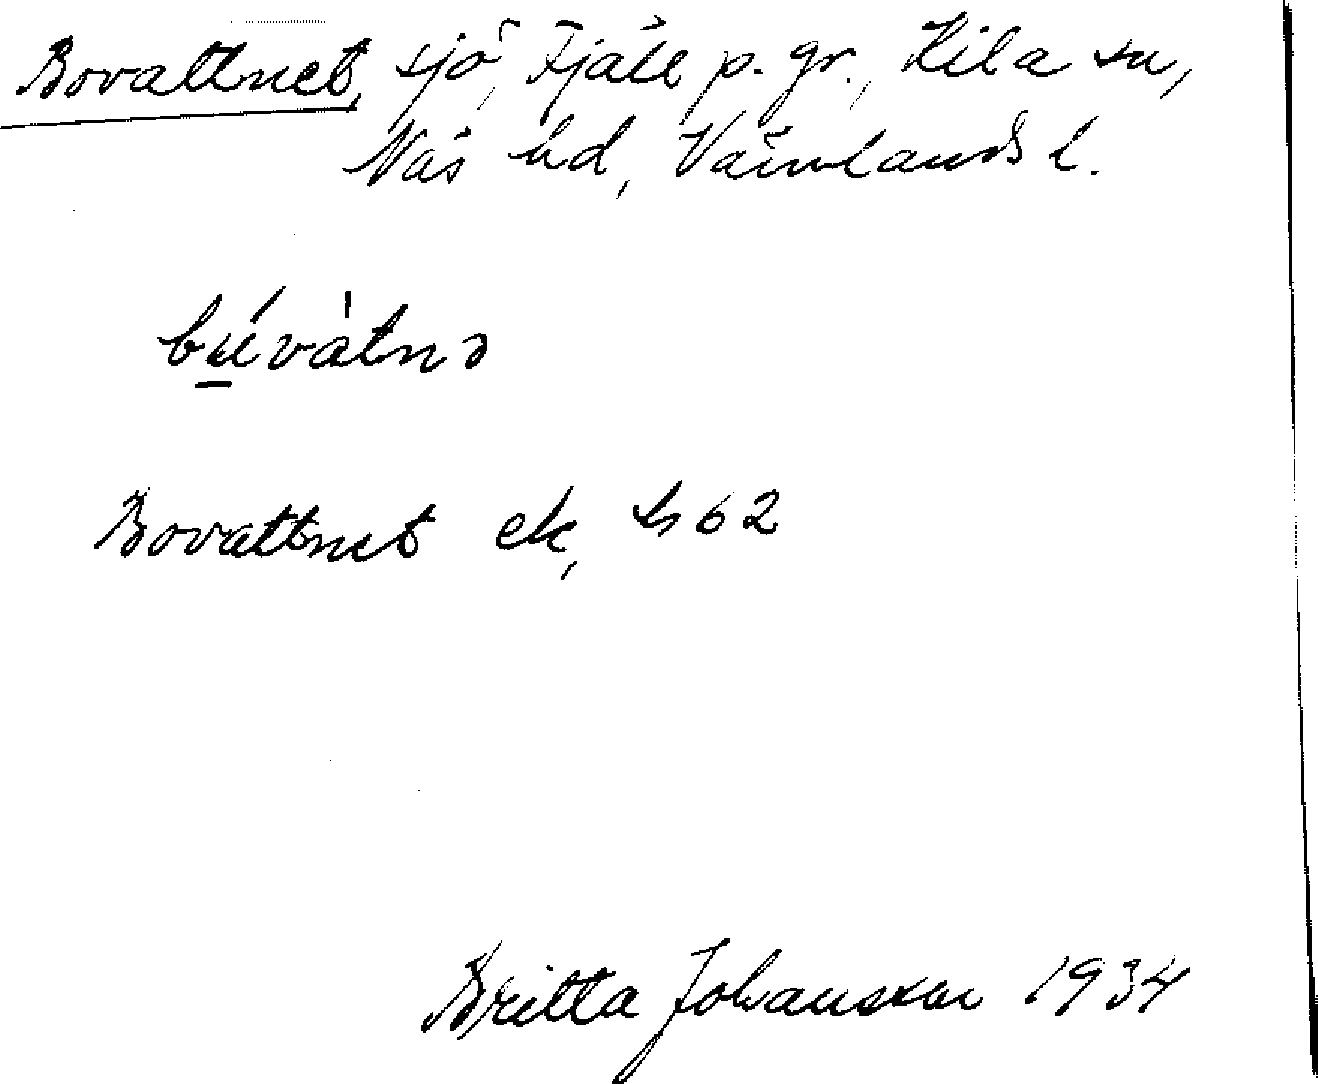 Bovattnet, sjö, Fjäll p. gr., Kila sn,
Näs hd, Värmlands l.
bú̲vàtnə
Bovattnet ek, 62
Britta Johansson 1934